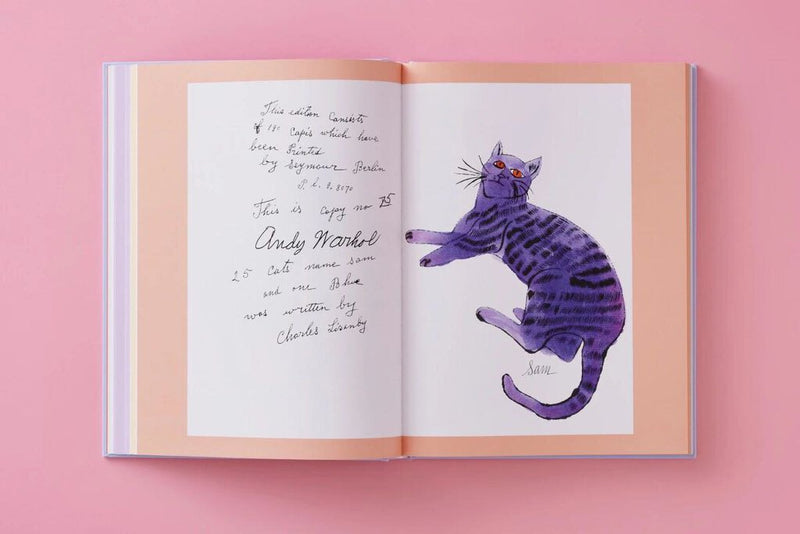 This edition Consists
of 190 Capis which have
been Printed
by Seymour Berlin
P. l. 8. 8070
This is Copay no 75
Andy Warhol
25 Cats name sam
and one Blue
was written by
Charles Lisanby
Sam